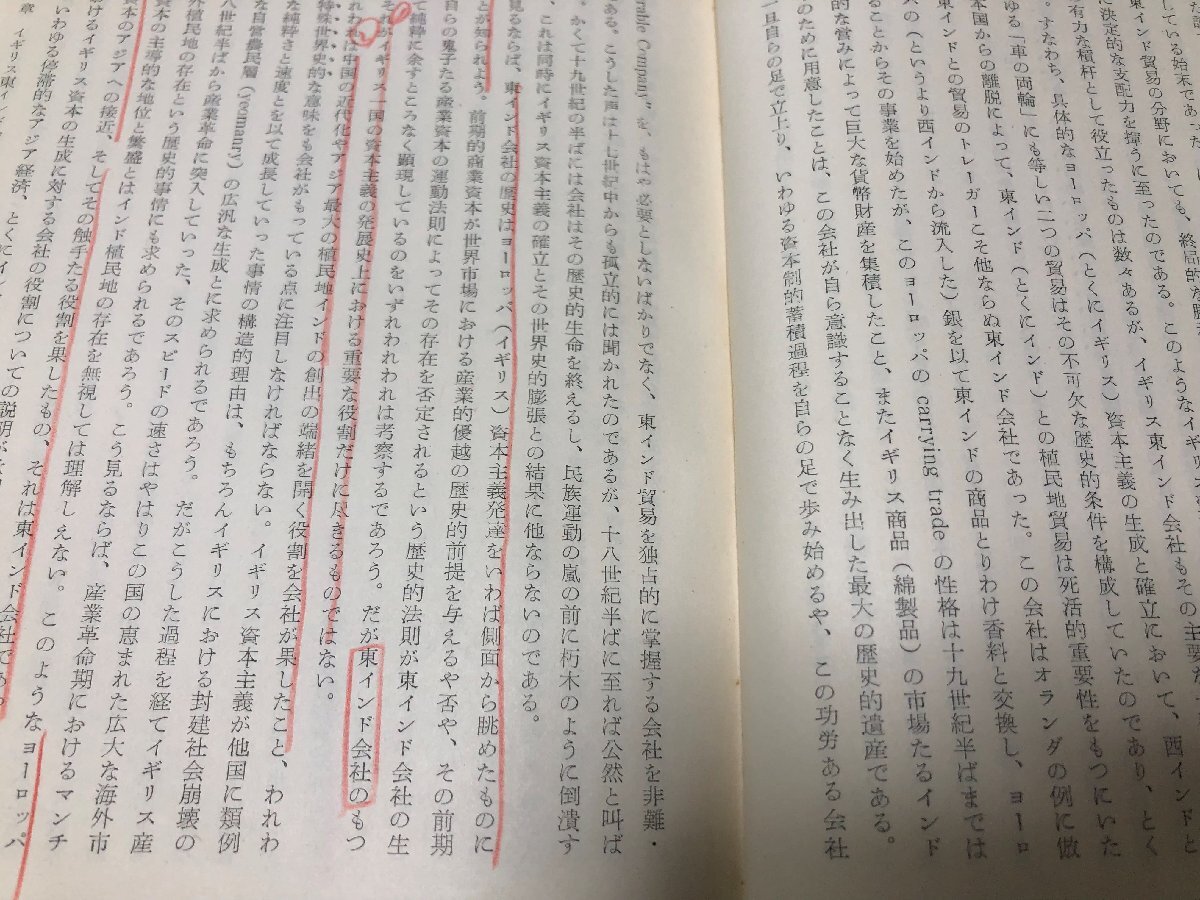 している始末であった
東インド貿易の分野においても、終局的な勝
に決定的な支配力を揮うに至ったのである。このようなイギリス
有力な槓杆として役立ったものは数々あるが、イギリス東インド会社もその主要な
。すなわち、具体的なヨーロッパ（とくにイギリス）資本主義の生成と確立において、西インドと
ゆる「車の両輪」にも等しい二つの貿易はその不可欠な歴史的条件を構成していたのであり、とく
本国からの離脱によって、東インド（とくにインド）との植民地貿易は死活的重要性をもつにいた
東インドとの貿易のトレーガーこそ他ならぬ東インド会社であった。この会社はオランダの例に倣
パの（というより西インドから流入した）銀を以て東インドの商品とりわけ香料と交換し、ヨーロ
ることからその事業を始めたが、このヨーロッパの carrying trade の性格は十九世紀半ばまでは
的な営みによって巨大な貨幣財産を集積したこと、またイギリス商品（綿製品）の市場たるインド
のために用意したことは、この会社が自ら意識することなく生み出した最大の歴史的遺産である。
一旦自らの足で立上り、いわゆる資本制的蓄積過程を自らの足で歩み始めるや、この功労ある会社
rable Company” を、もはや必要としないばかりでなく、東インド貿易を独占的に掌握する会社を非難・
ある。こうした声は十七世紀中からも孤立的には聞かれたのであるが、十八世紀半ばに至れば公然と叫ば
。かくて十九世紀の半ばには会社はその歴史的生命を終えるし、民族運動の嵐の前に朽木のように倒潰す
、これは同時にイギリス資本主義の確立とその世界史的膨張との結果に他ならないのである。
見るならば、東インド会社の歴史はヨーロッパ（イギリス）資本主義発達をいわば側面から眺めたものに
とが知られよう。前期的商業資本が世界市場における産業的優越の歴史的前提を与えるや否や、その前期
自らの鬼子たる産業資本の運動法則によってその存在を否定されるという歴史的法則が東インド会社の生
て純粋に余すところなく顕現しているのをいずれわれわれは考察するであろう。だが東インド会社のもつ
それがイギリス一国の資本主義の発展史上における重要な役割だけに尽きるものではない。
れわれは中国の近代化やアジア最大の植民地インドの創出の端緒を開く役割を会社が果したこと、われわ
特殊世界史的な意味をも会社がもっている点に注目しなければならない。イギリス資本主義が他国に類例
な純粋さと速度とを以て成長していった事情の構造的理由は、もちろんイギリスにおける封建社会崩壊の
な自営農民層（yeomanry）の広汎な生成とに求められるであろう。だがこうした過程を経てイギリス産
八世紀半ばから産業革命に突入していった、そのスピードの速さはやはりこの国の恵まれた広大な海外市
外植民地の存在という歴史的事情にも求められるであろう。こう見るならば、産業革命期におけるマンチ
資本の主導的な地位と繁盛とはインド植民地の存在を無視しては理解しえない。このようなヨーロッパ
資本のアジアへの接近、そしてその触手たる役割を果したもの、それは東インド会社であっ
けるイギリス資本の生成に対する会社の役割についての説明が
いわゆる停滞的なアジア経済、とくにイン
章　イギリス東イン